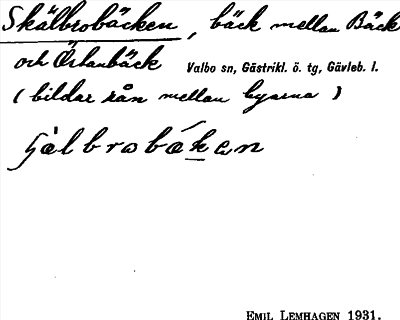 Skälbrobäcken, bäck mellan Bäck
och Östanbäck Valbo sn, Gästrikl. ö. tg, Gävleb. l.
(bildar rån mellan byarna)
ʃälbrobäkan
EMIL LEMHAGEN 1931.